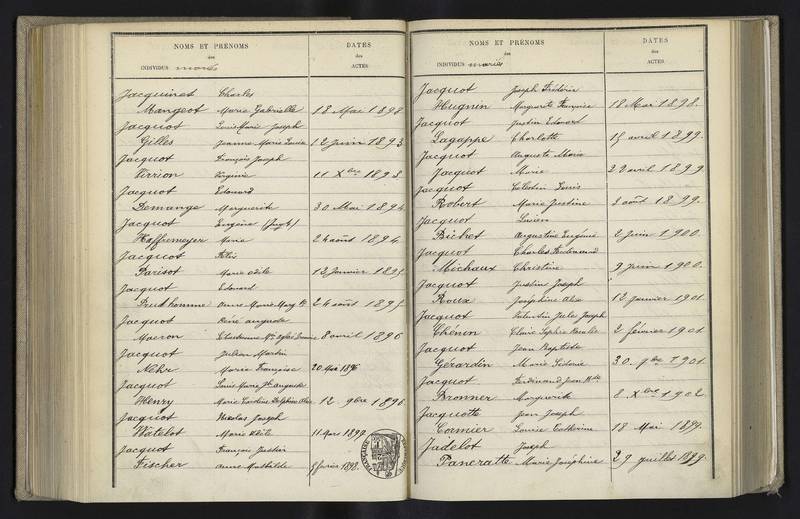 NOMS ET PRÉNOMS DATES
des des
INDIVIDUS mariés ACTES
Jacquinet Charles
Mangeot Marie Gabrielle 18 Mai 1898
Jacquot Louis Marie Joseph
Gilles Jeanne Marie Louise 12 juin 1893
Jacquot François Joseph
Virrion Virginie 11 Xbre 1893
Jacquot Edouard
Demange Marguerite 30 Mai 1894
Jacquot Eugène
Haffremeyer Marie 24 août 1894
Jacquot Félix
Parisot Marie 12 janvier 1895
Jacquot Edouard
Prud'homme Anne Marie 24 août 1895
Jacquot René auguste
Macron 8 avril 1896
Jacquot Julien Martin
Nehr Marie Françoise 20 Mai 1896
Jacquot Louis Marie auguste
Henry Marie Caroline Delphine 12 9bre 1896
Jacquot Nicolas Joseph
Watelot Marie 11 Mars 1897
Jacquot François Justin
Fischer Anne Mathilde février 1898
NOMS ET PRÉNOMS DATES
des des
INDIVIDUS mariés ACTES
Jacquot Joseph Frédéric
Hugnin Marguerite Françoise 18 Mai 1898.
Jacquot Justin Edouard
Lagappe Charlotte 15 avril 1899.
Jacquot Auguste Marie
Jacquot Marie 22 avril 1899
Jacquot Célestin Louis
Robert Marie Justine 3 août 1899.
Jacquot Lucien
Bichet Augustine Eugénie 2 juin 1900.
Jacquot Charles Ferdinand
Michaux Christine 9 juin 1900.
Jacquot Justin Joseph
Roux Joséphine 12 janvier 1901.
Jacquot Valentin Jules Joseph
Chénin Claire Sophie 2 février 1901
Jacquot Jean Baptiste
Gérardin Marie 30. 9bre 1901.
Jacquot Ferdinand Jean Bte
Bronner Marguerite 8 Xbre 1902.
Jacquotte Jean Joseph
Cormier Louise Catherine 18 Mai 1899.
Jadelot Joseph
Pancratte Marie Joséphine 29 juillet 1899.